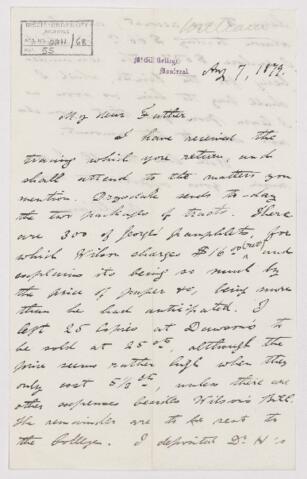 McGILL UNIVERSITY
ARCHIVES
68
55
McGill College,
Montreal
Aug 7, 1879.
My dear Father
I have received the
tracing which you return, and
shall attend to the matters you
mention. Drysdale sends to-day
the two packages of tracts. There
are 300 of George's pamphlets, for
which Wilson charges $16 and
explains its being so much by
the price of paper &c, being more
than he had anticipated. I
left 25 copies at Dawson's to
be sold at 25 cts, although the
price seems rather high when they
only cost 5½ cts, unless there are
other expenses besides Wilson's Bill.
The remainder are to be sent to
the College. I deposited Dr H's